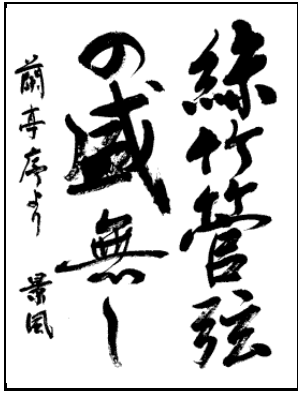 絲竹管弦
の盛無し
蘭亭序より 景風